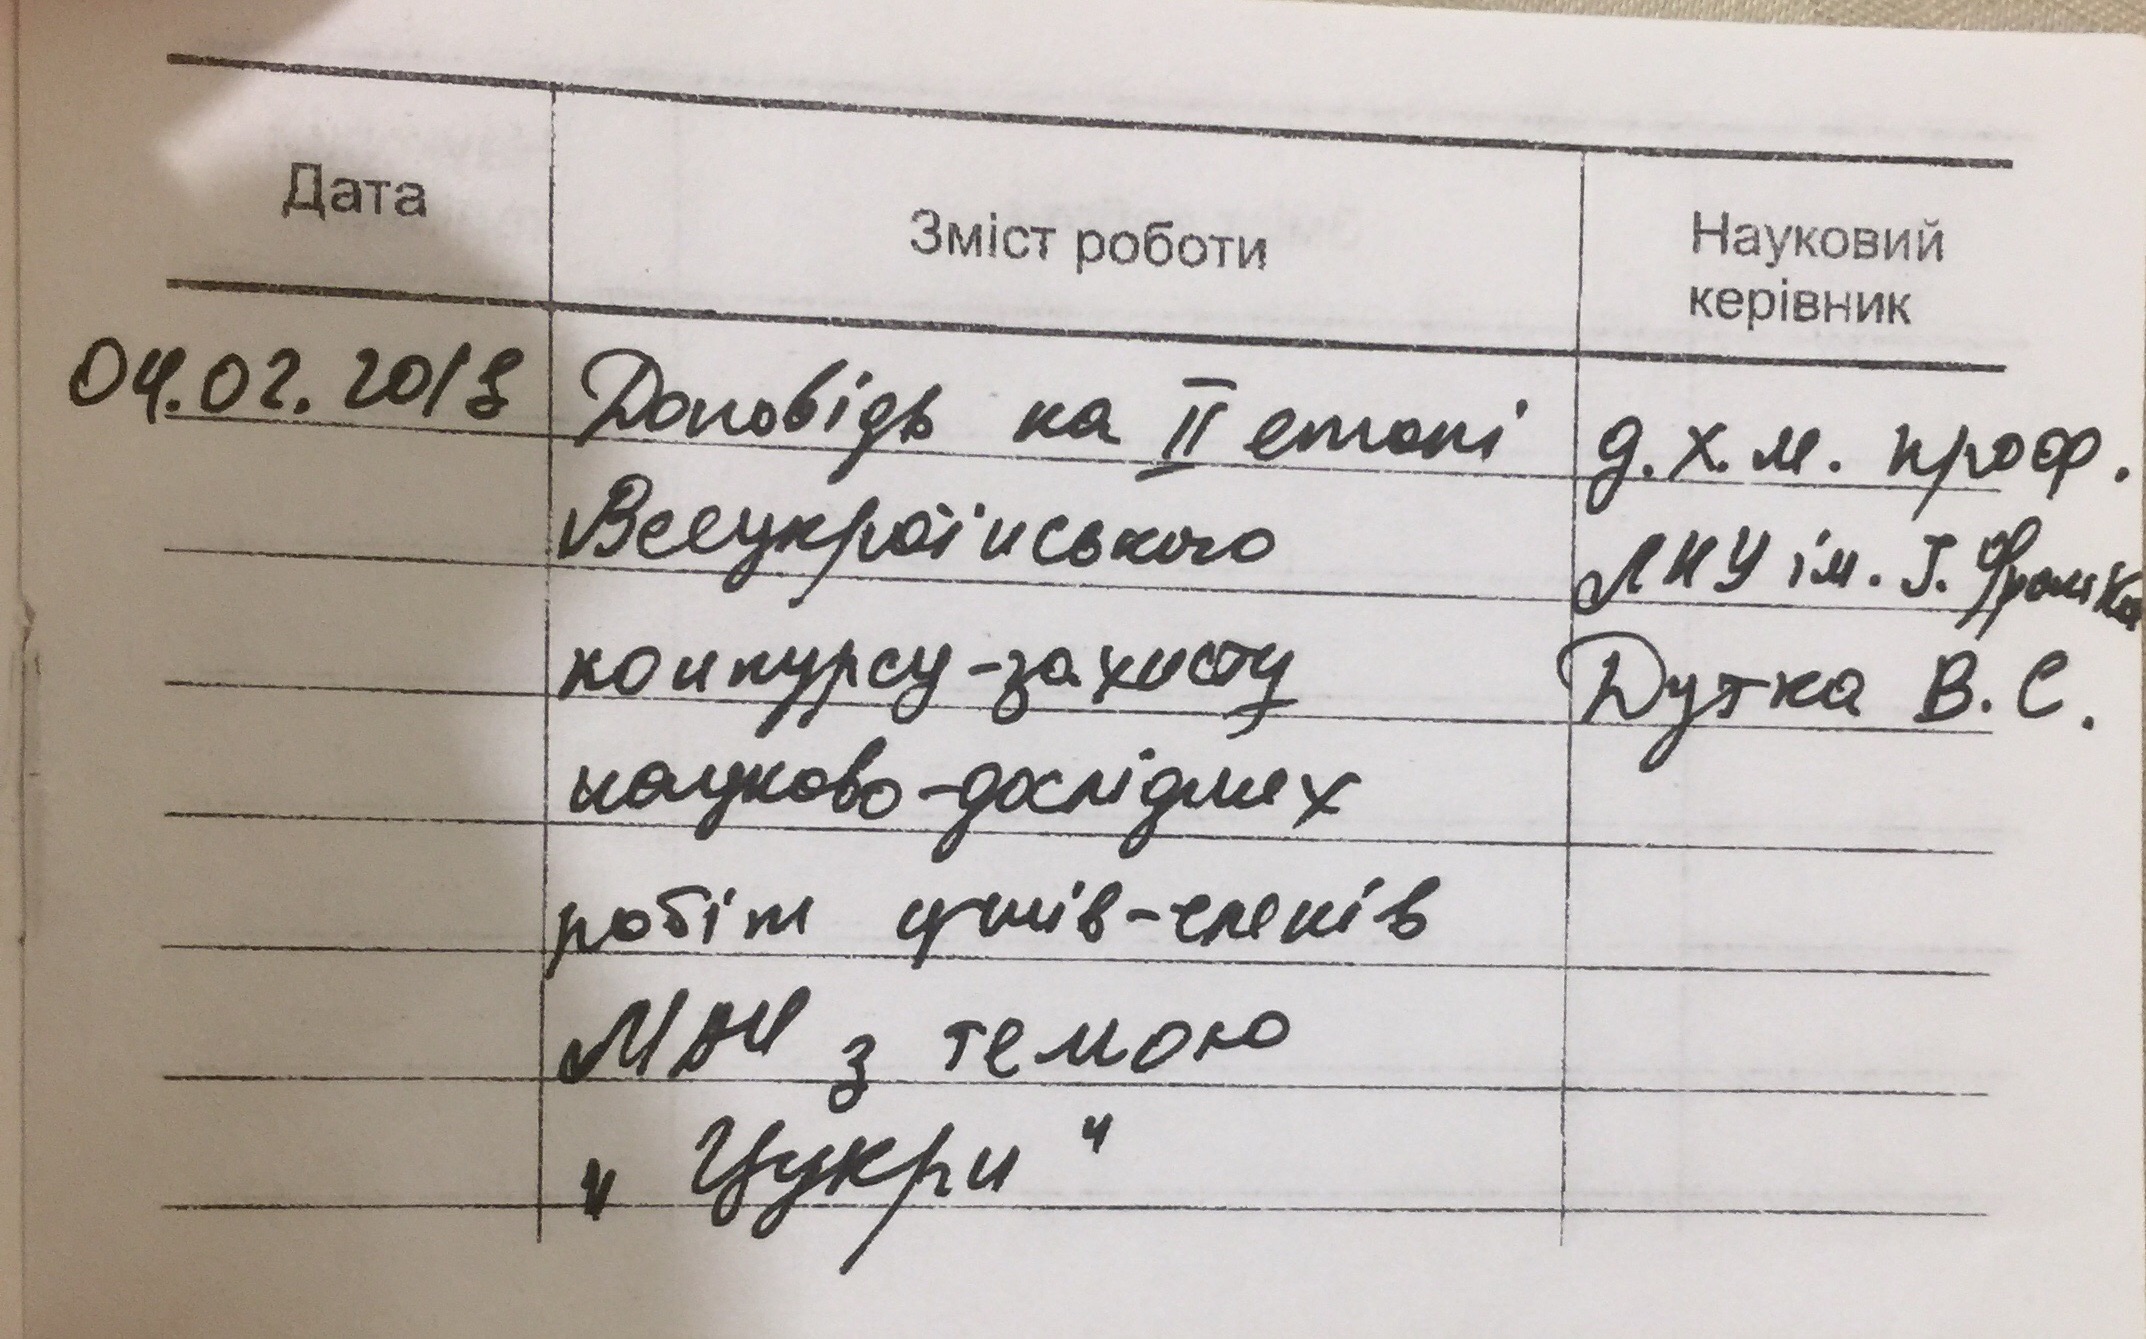 Дата
Зміст роботи
Науковий
керівник
04.02.2018
Доповідь на II етапі
д.х.н. проф.
Всеукраїнського
ЛНУ ім. І. Франка
конкурсу-захисту
Дутка В.С.
науково-дослідних
робіт учнів-членів
МАН з темою
„Цукри"